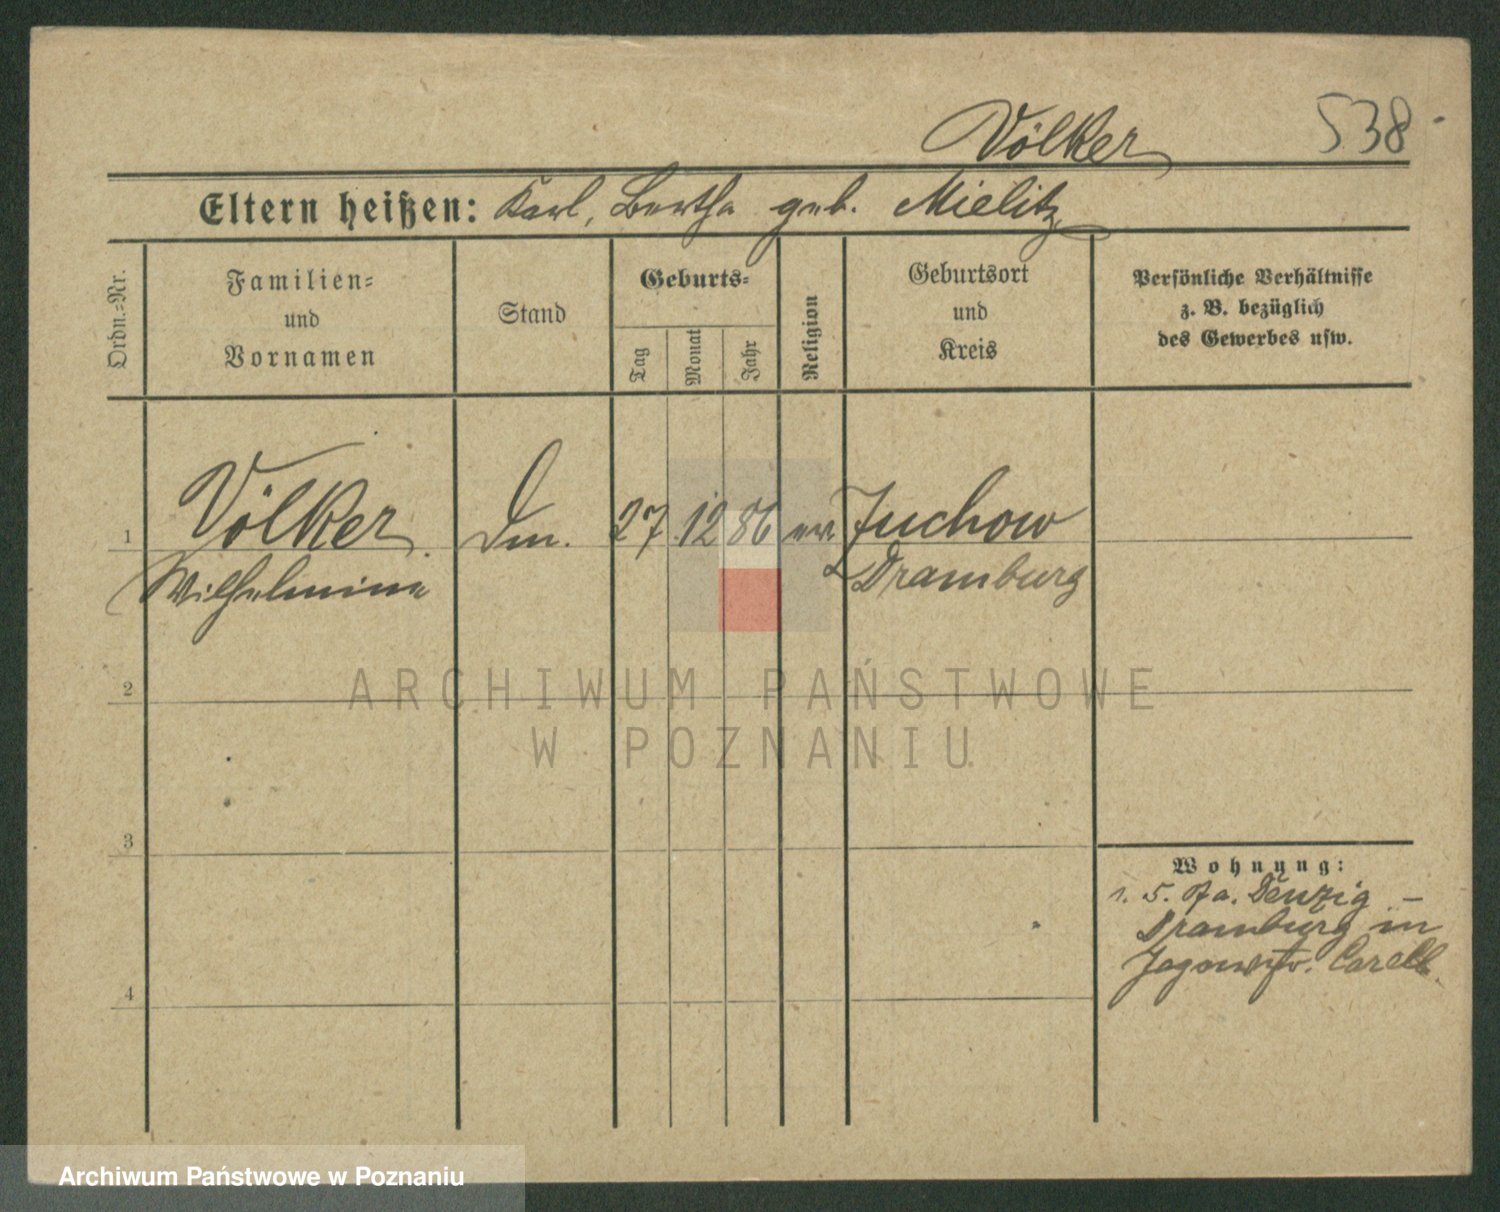 Völker 538
Eltern heißen: Karl, Bertha geb. Mielitz
Ordn.=Nr.
Familien=
und
Vornamen
Stand
Geburts=
Tag
Monat
Jahr
Religion
Geburtsort
und
Kreis
Persönliche Verhältnisse
z. B. bezüglich
des Gewerbes usw.
1 Völker Dm. 27 12 86 ev. Juchow
Wilhelmine Dramburg
2
3
4
Wohnung:
Denzig –
Dramburg in
ARCHIWUM PAŃSTWOWE
W POZNANIU
Archiwum Państwowe w Poznaniu